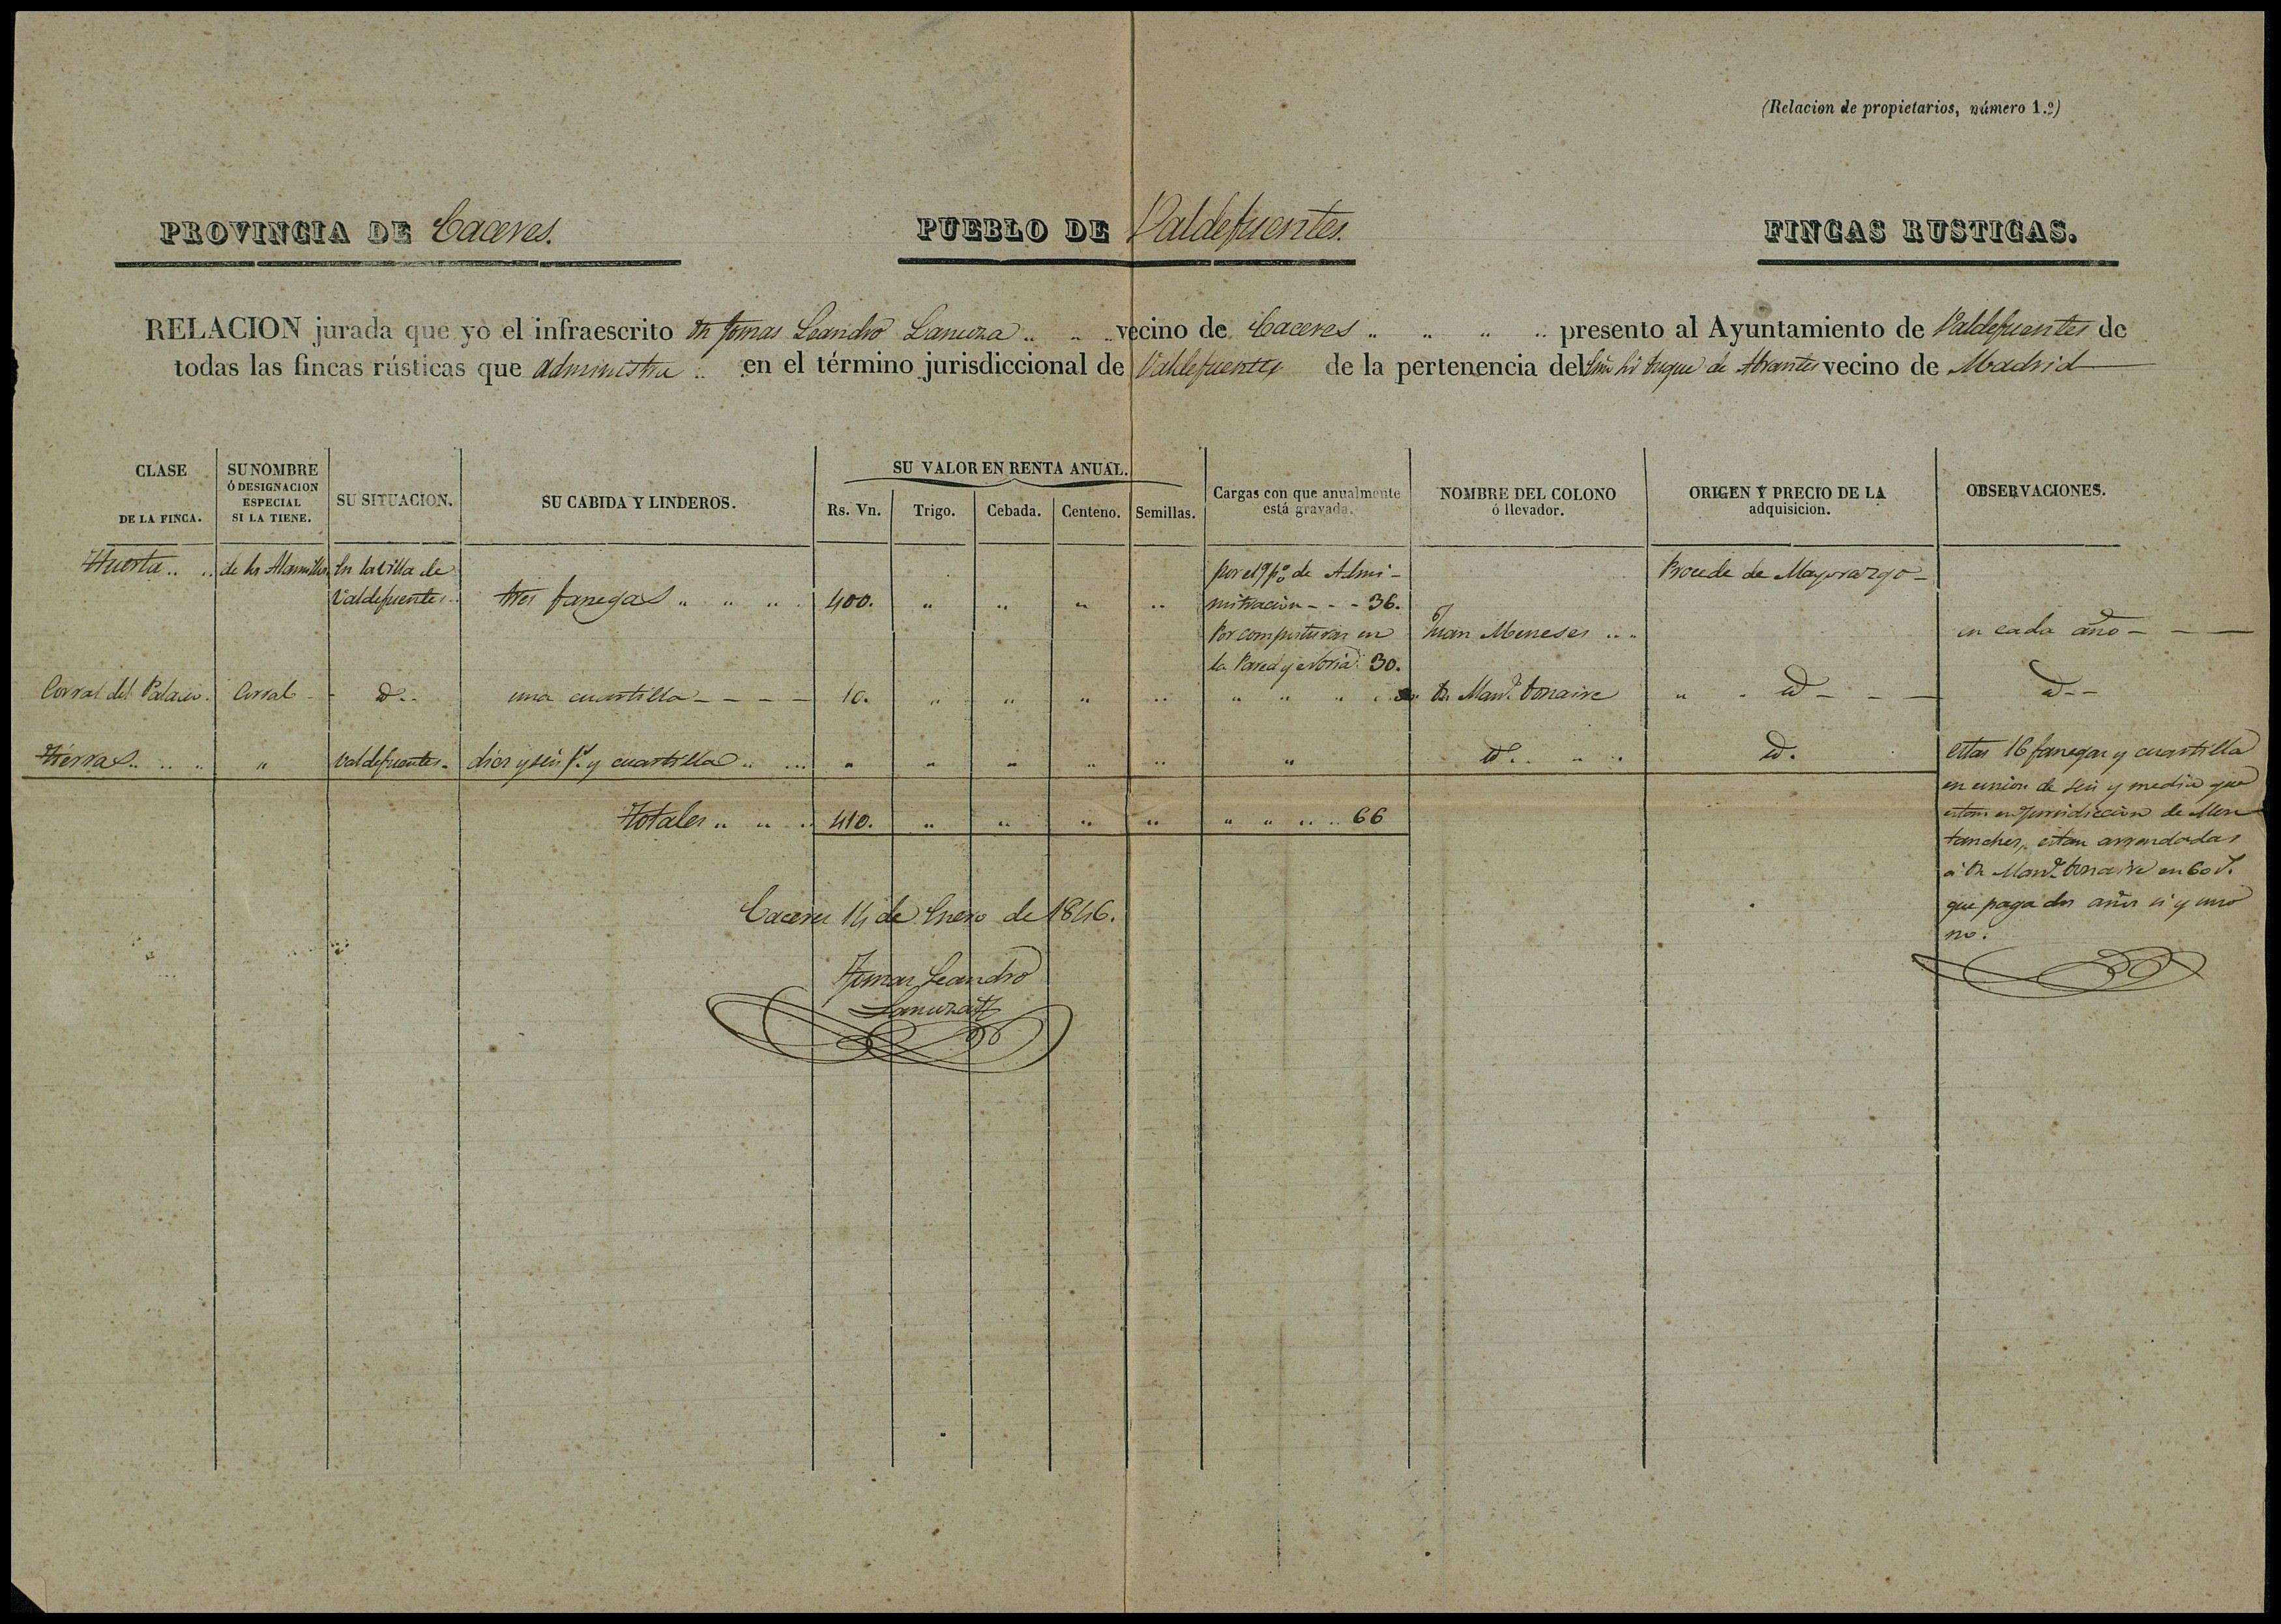 (Relacion de propietarios, número 1.º)
PROVINCIA DE Caceres.
PUEBLO DE Valdefuentes.
FINCAS RUSTICAS.
RELACION jurada que yo el infraescrito Dn Tomas Leandro Lanuza vecino de Caceres presento al Ayuntamiento de Valdefuentes de
todas las fincas rústicas que administra en el término jurisdiccional de Valdefuentes de la pertenencia del Duque de Abrantes vecino de Madrid
CLASE
DE LA FINCA.
SU NOMBRE
Ó DESIGNACION
ESPECIAL
SI LA TIENE.
SU SITUACION.
SU CABIDA Y LINDEROS.
SU VALOR EN RENTA ANUAL.
Rs. Vn.
Trigo.
Cebada.
Centeno.
Semillas.
Cargas con que anualmente
está gravada.
NOMBRE DEL COLONO
ó llevador.
ORIGEN Y PRECIO DE LA
adquisicion.
OBSERVACIONES.
Huerta de los Alamillos En la villa de
Valdefuentes tres fanegas 400.
por el 9 p% de Admi-
nistracion - - - 36.
Por composturas en
la Pared y 30.
Juan Meneses
Procede de Mayorazgo
en cada año
Corral del Palacio. Corral id. una cuartilla 10. " " " " " Dn Manl. Donaire id id
Tierras " Valdefuentes diez y seis fs. y cuartilla " " " " " " id. id.
estas 16 fanegas y cuartilla
en union de seis y media que
estan en Jurisdiccion de Mon
tanches, estan arrendadas
á Dn Manl. Donaire en 60 rs.
que paga dos años si y uno
no.
Totales 410. " " " " " 66
Caceres 14 de Enero de 1846.
Tomas Leandro
Lanuza